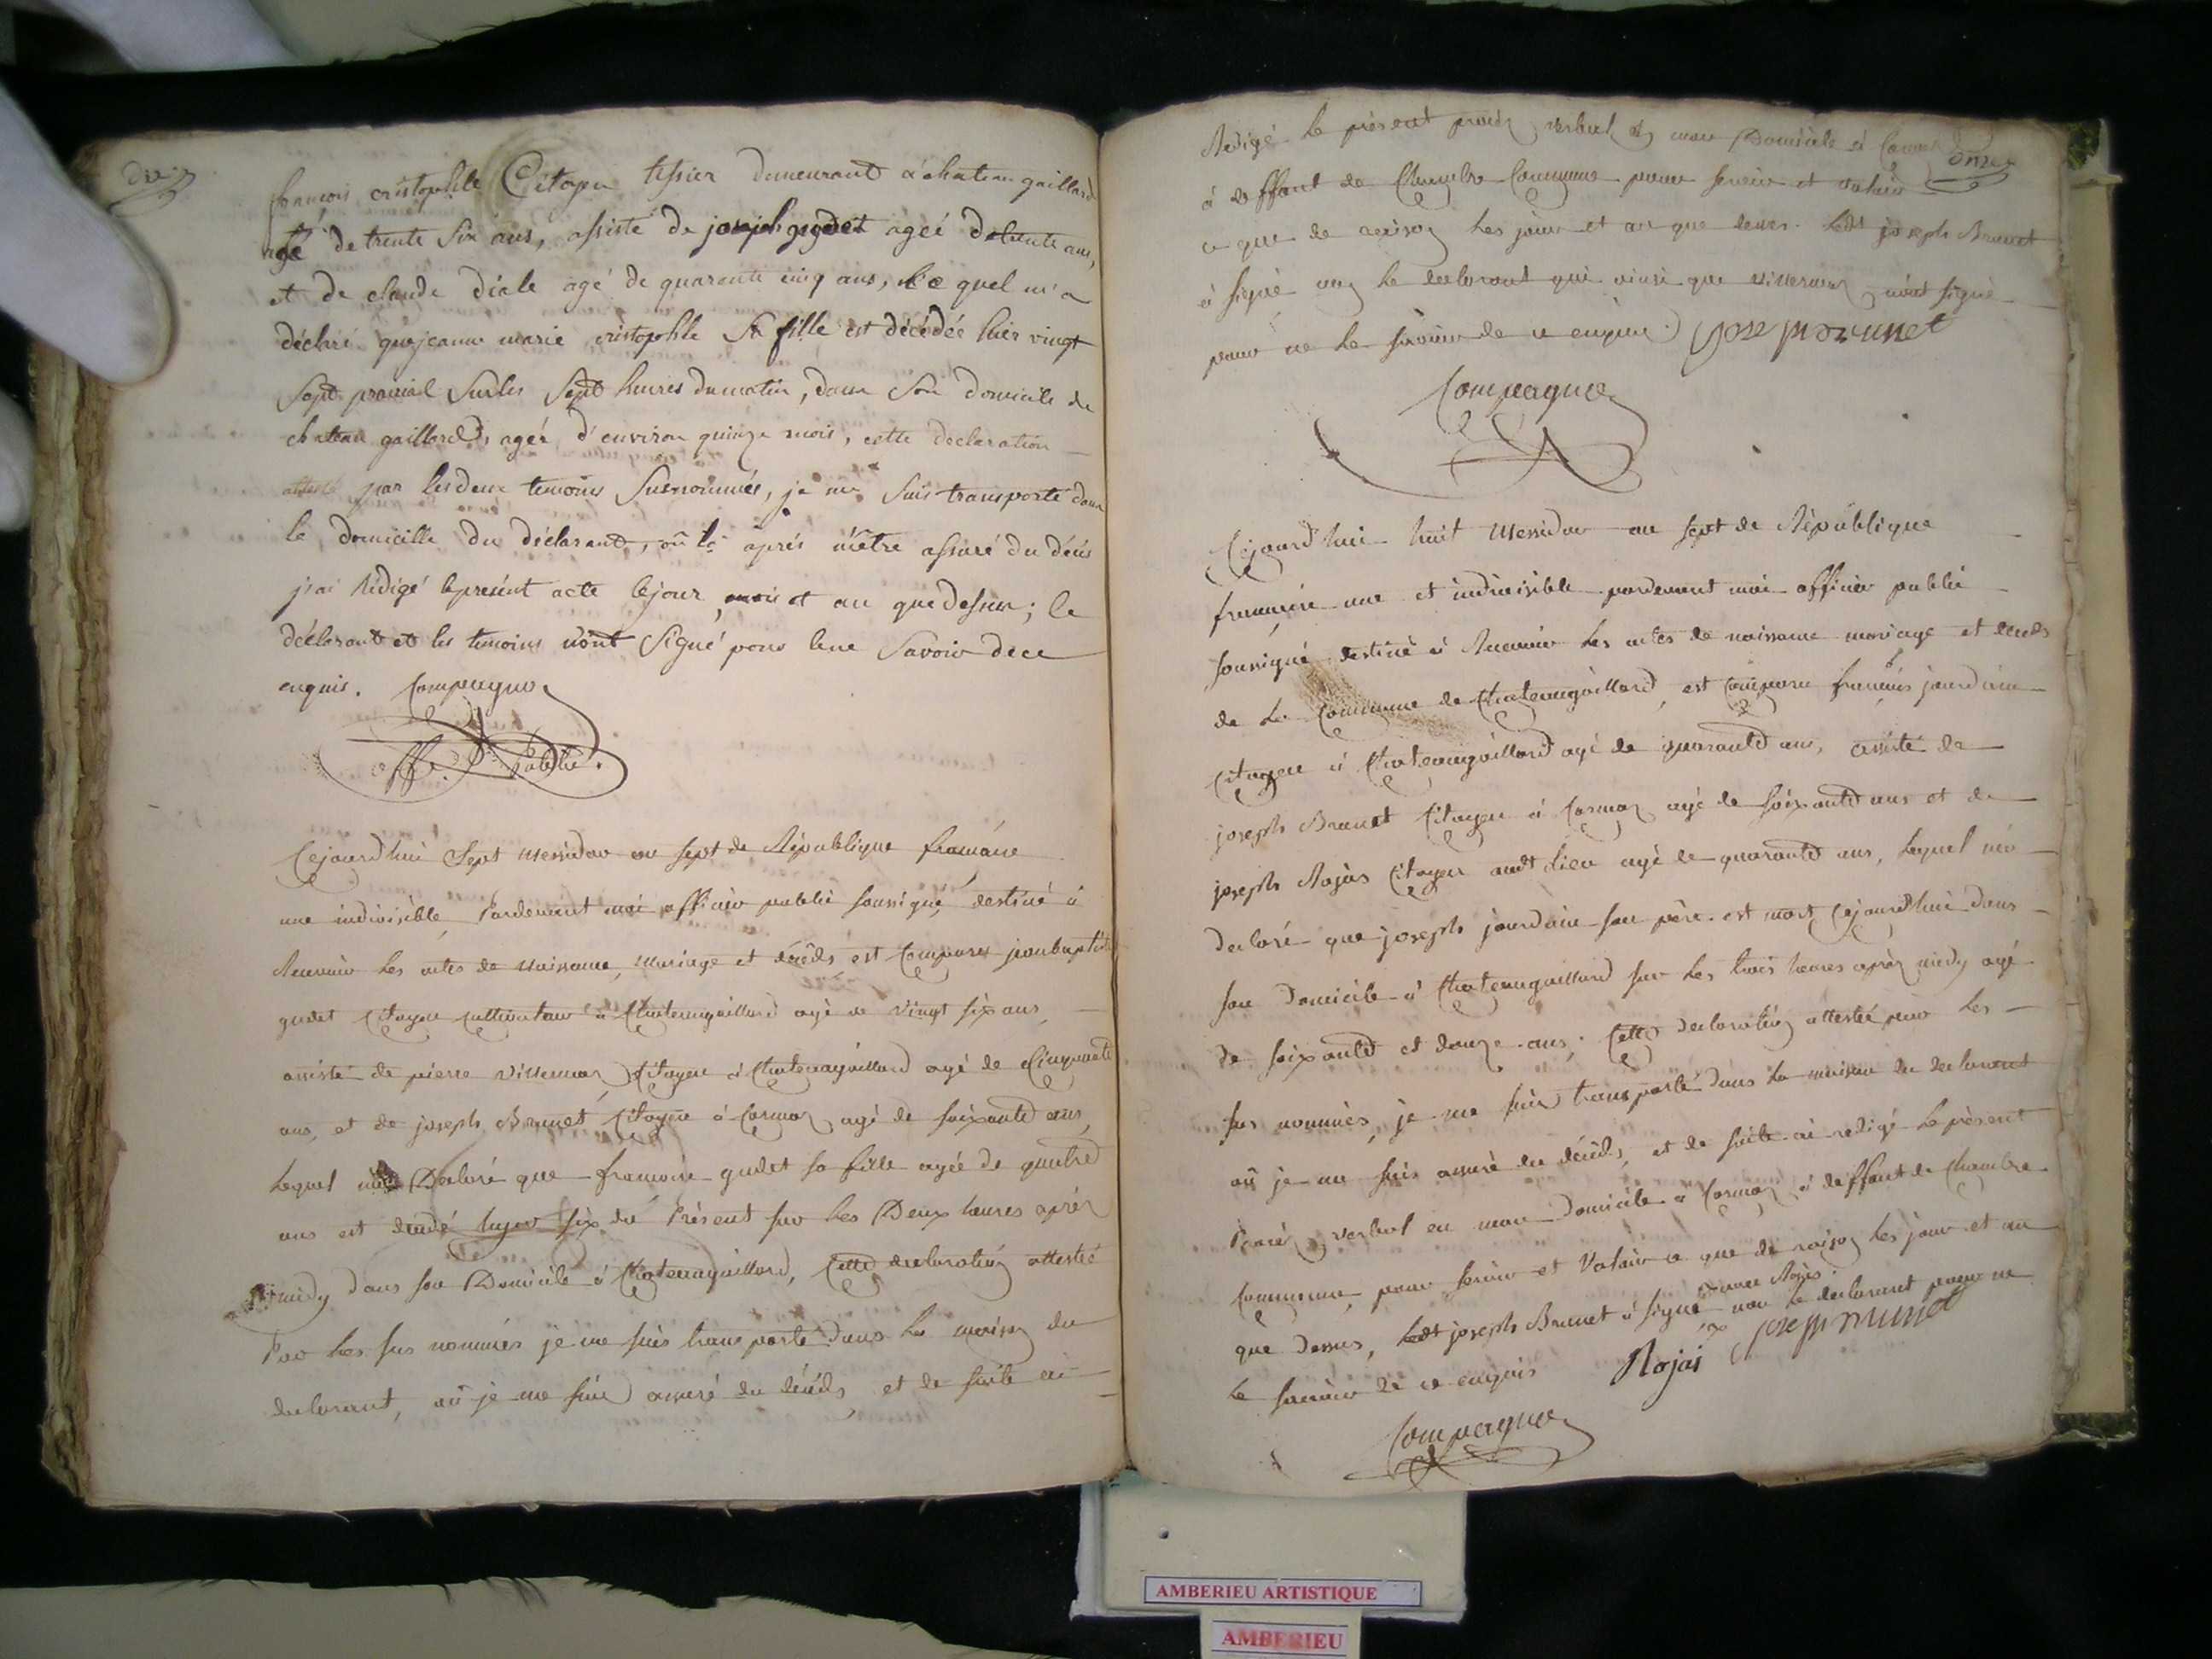 dix
françois cristophle Citoyen tissier demeurant a chateau gaillard
agé de trente six ans, assisté de joseph gudet ageé de trente ans,
et de claude diale agé de quarante cinq ans, le quel m'a
déclaré que jeanne marie cristophle sa fille est décédée hier vingt
sept prairial sur les sept heures du matin, dans son domicile de
chateau gaillard, agée d'environ quinze mois, cette declaration
attesté par les deux temoins susnommés, je me suis transporté dans
le domicille du déclarant, où là après m'être assuré du décés
j'ai rédigé le présent acte le jour, mois et an que dessus; le
déclarant et les temoins n'ont signé pour ne le savoir de ce
enquis. Compagnon
offr. public.
Cejourd'hui sept messidor an sept de République francaise
une indivisible, Pardevant moi officier public soussigné, destiné à
Recevoir les actes de naissance, mariage et décès est Comparu jean baptiste
gudet Citoyen cultivateur à Chateaugaillard agé de vingt six ans,
assisté de pierre villermoz Citoyen à Chateaugaillard agé de Cinquante
ans, et de joseph Brunet, Citoyen à Cormoz agé de soixante ans,
lequel m'a Declaré que francoise gudet sa fille agée de quatre
ans est décédé hyer six du Présent sur les Deux heures après
midy dans son Domicile à Chateaugaillard, Cette declaration attesté
Par les sus nommés je me suis transporté dans la maison du
declarant, où je me suis assuré du décéds, et de suite ai
onze
Redigé le présent procès verbal en mon Domicile à Cormoz
à deffaut de Chambre Commune pour servir et valoir
ce que de raison les jour et an que dessus. ledt joseph Brunet
à signé non le declarant qui ainsi que villermoz n'ont signé
pour ne le savoir de ce enquis. Joseph brunet
Compagnon
Cejourd'hui huit messidor an sept de République
française une et indivisible pardevant moi officier public
soussigné destiné à Recevoir les actes de naissance mariage et décéds
de la Commune de Chateaugaillard, est Comparu françois jourdain
Citoyen à Chateaugaillard agé de quarante ans, assisté de
joseph Brunet Citoyen à Cormoz agé de soixante ans et de
joseph Rojas Citoyen audt lieu agé de quarante ans, lequel m'a
declaré que joseph jourdain son père est mort Cejourd'hui dans
son Domicile à Chateaugaillard sur les trois heures après midy agé
de soixante et douze ans. Cette declaration attesté par les
sus nommés, je me suis transporté dans la maison du declarant
où je me suis assuré du décéds, et de suite ai redigé le présent
Procès verbal en mon Domicile à Cormoz à deffaut de Chambre
Commune, pour servir et Valoir ce que de raison les jour et an
que dessus, ledt joseph Brunet à signé avec Rojas non le declarant pour ne
le savoir de ce enquis Rojas joseph brunet
Compagnon
AMBERIEU ARTISTIQUE
AMBERIEU